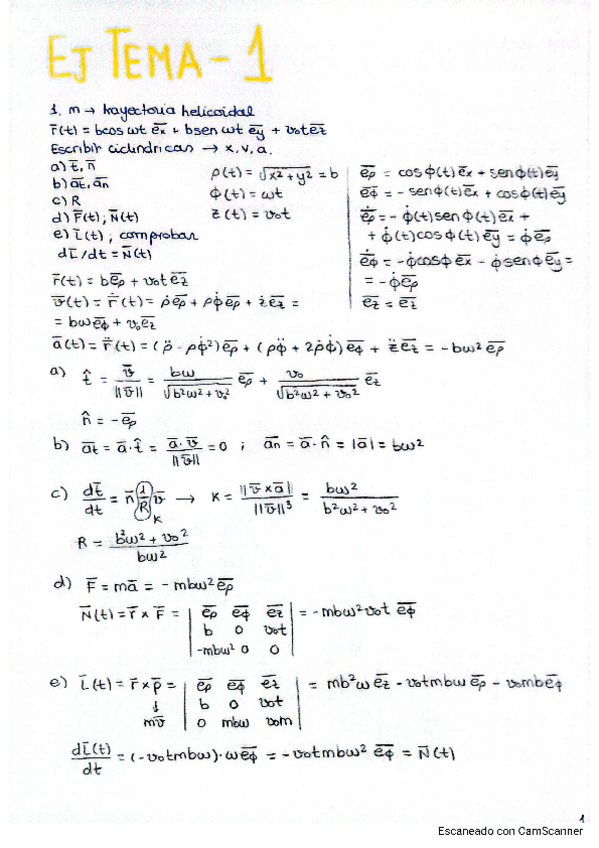 EJ TEMA - 1
1. m → trayectoria helicoidal
r̄(t) = bcos ωt ēx + bsen ωt ēy + v₀t ēz
Escribir cilíndricas → x, v, a.
a) t̄, n̄
b) āt, ān
c) R
d) F̄(t), N̄(t)
e) L̄(t), comprobar
dL̄/dt = N̄(t)
ρ(t) = √(x² + y²) = b
ϕ(t) = ωt
z(t) = v₀t
ēρ = cosϕ(t) ēx + senϕ(t) ēy
ēϕ = - senϕ(t) ēx + cosϕ(t) ēy
ēρ̇ = - ϕ̇(t) senϕ(t) ēx +
+ ϕ̇(t) cosϕ(t) ēy = ϕ̇ ēρ
ēϕ̇ = - ϕ̇cosϕ ēx - ϕ̇senϕ ēy =
= - ϕ̇ ēρ
ēż = ēz
r̄(t) = b ēρ + v₀t ēz
v̄(t) = r̄̇(t) = ρ̇ ēρ + ρϕ̇ ēρ + ż ēz =
= bω ēϕ + v₀ ēz
ā(t) = r̄̈(t) = (ρ̈ - ρϕ̇²) ēρ + (ρϕ̈ + 2ρ̇ϕ̇) ēϕ + z̈ ēz = - bω² ēρ
a) t̂ = v̄/||v̄|| = bω/√(b²ω² + v₀²) ēρ + v₀/√(b²ω² + v₀²) ēz
n̂ = - ēρ
b) āt = ā · t̂ = ā · v̄/||v̄|| = 0 ; ān = ā · n̂ = |ā| = bω²
c) dt̄/dt = n̄ (1/R) v̄ → K = ||v̄ x ā||/||v̄||³ = bω²/(b²ω² + v₀²)
K
R = (b²ω² + v₀²)/bω²
d) F̄ = mā = - mbω² ēρ
N̄(t) = r̄ x F̄ = | ēρ ēϕ ēz | = - mbω² v₀t ēϕ
b 0 v₀t
-mbω² 0 0
e) L̄(t) = r̄ x p̄ = | ēρ ēϕ ēz | = mb²ω ēz - v₀tmbω ēρ - v₀mb ēϕ
↓ b 0 v₀t
mv̄ 0 mbω v₀m
dL̄(t)/dt = (- v₀tmbω) · ω ēϕ = - v₀tmbω² ēϕ = N̄(t)
1
Escaneado con CamScanner